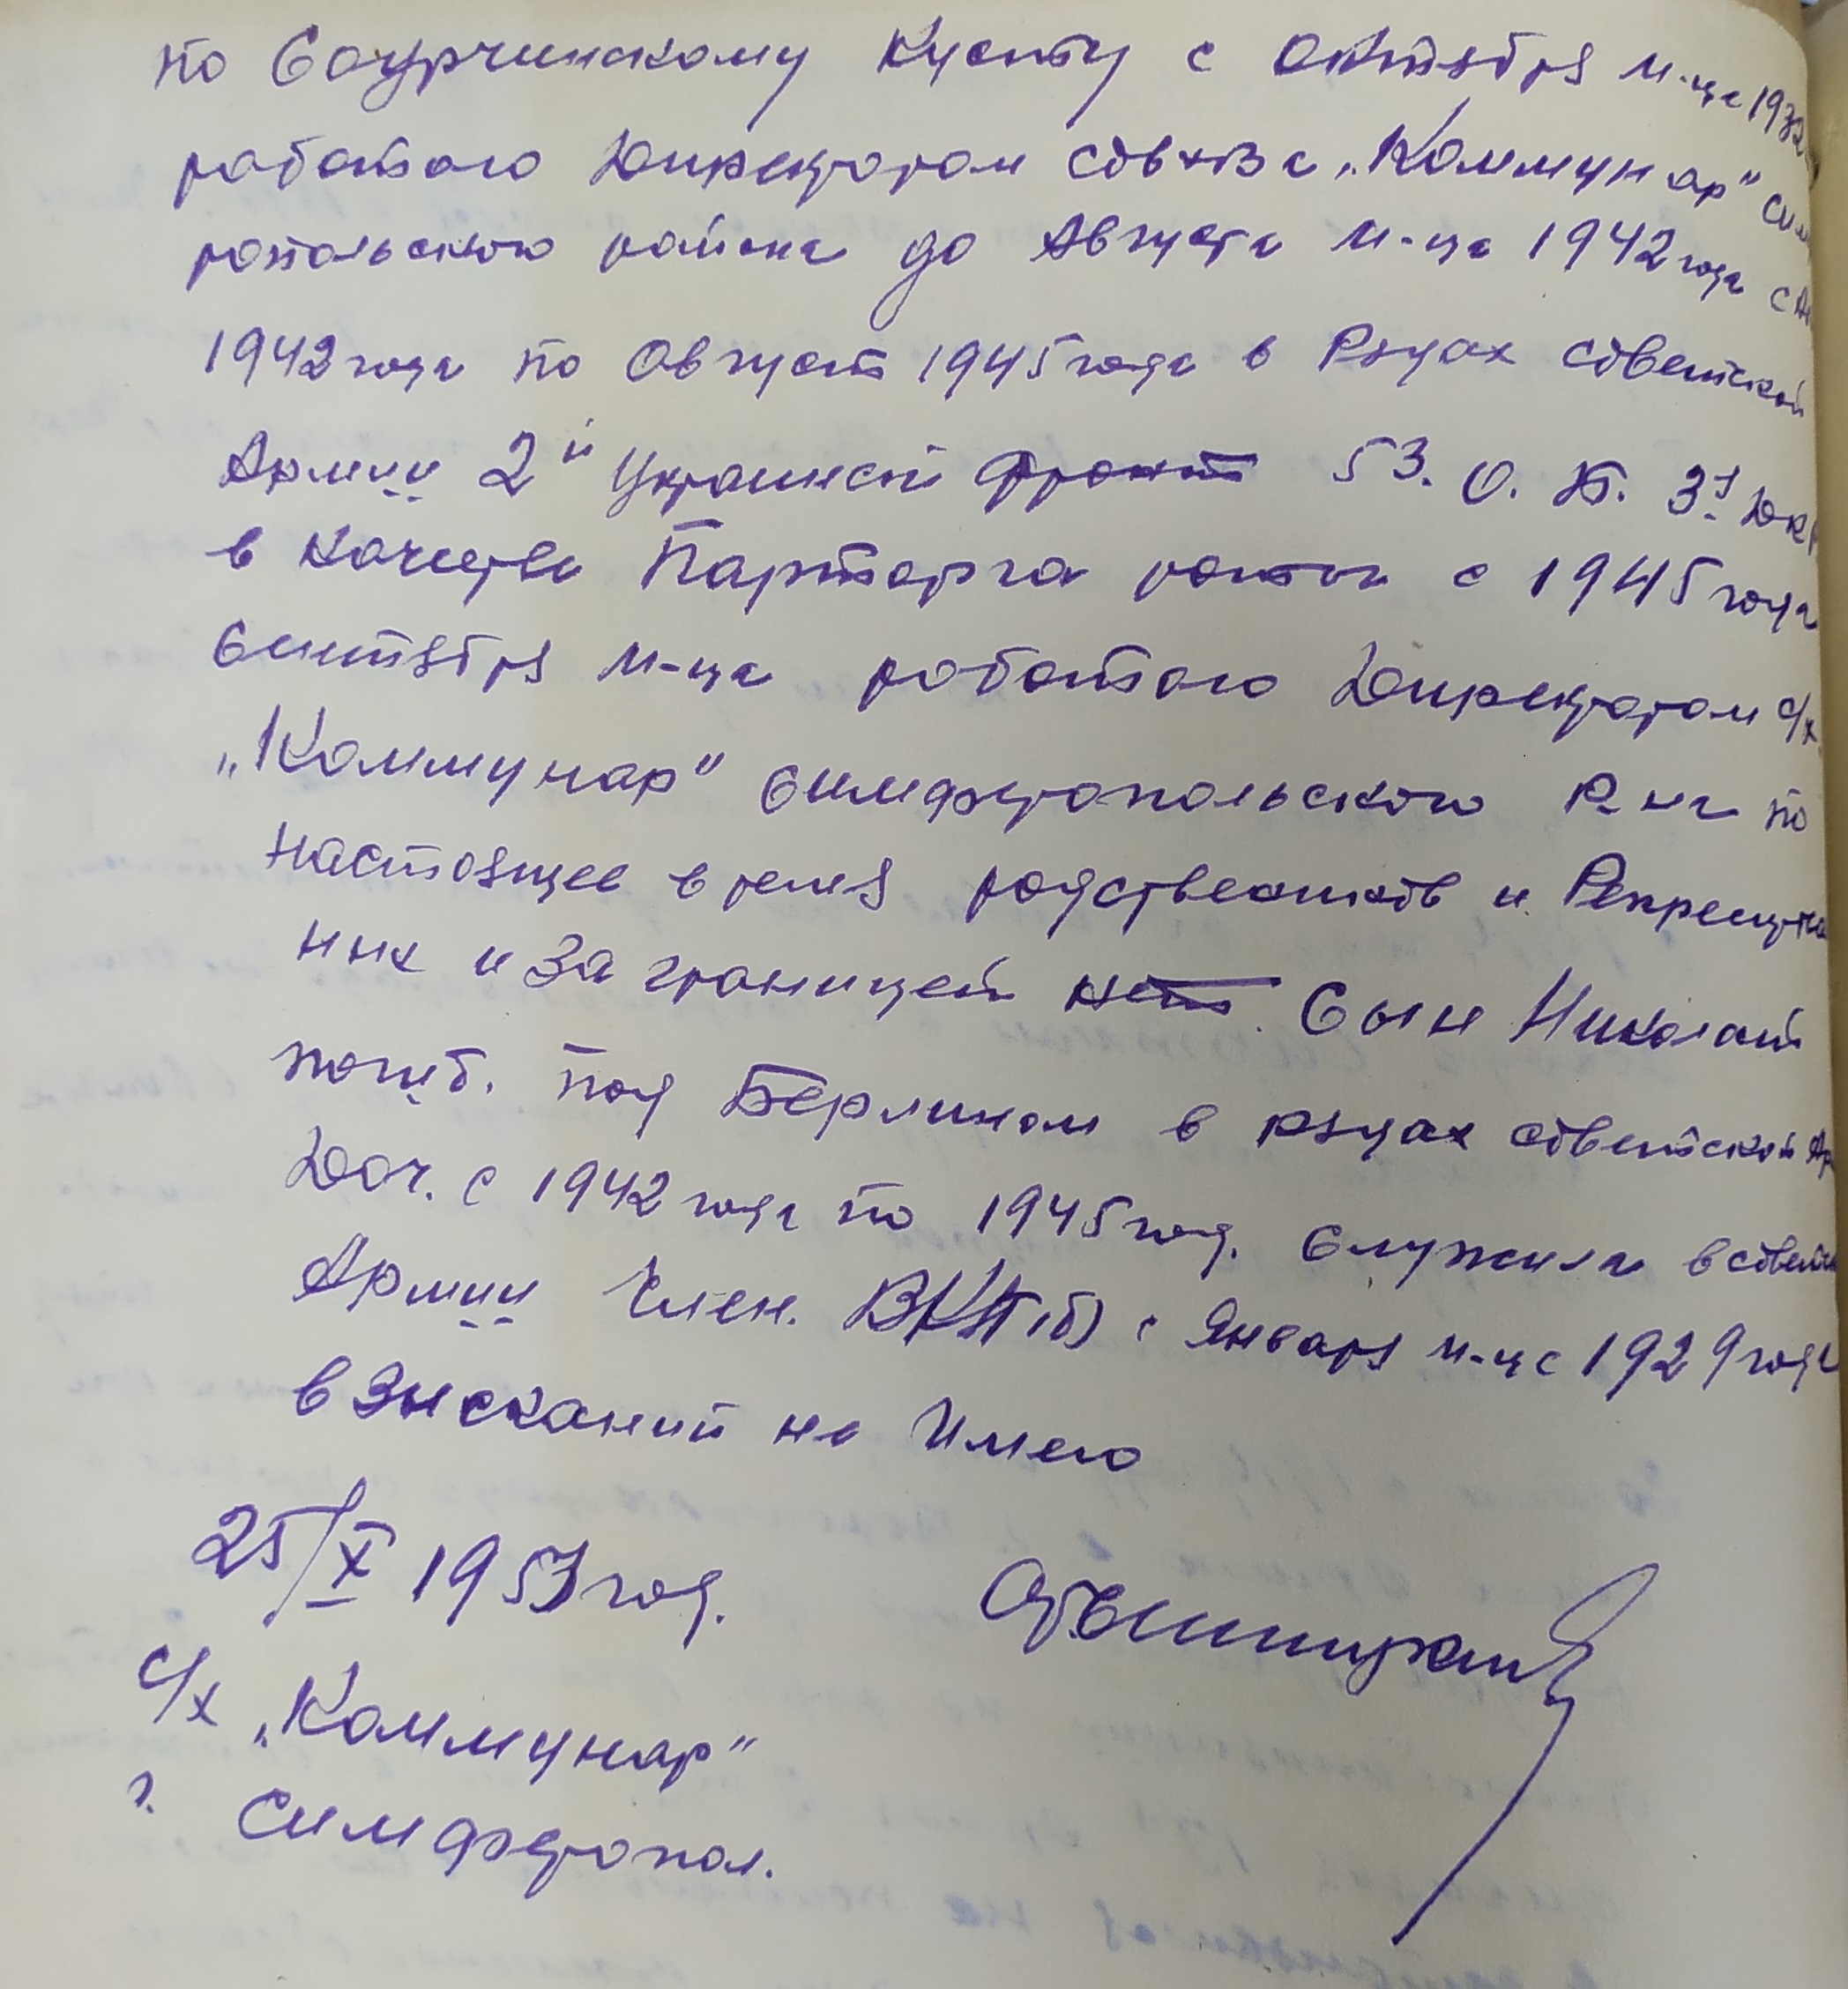 по Саурчинскому Кусту с Октября м-ца
работаю Директором совхоза „Коммунар"
ропольского района до Августа м-ца 1942 года с
1942 года по Август 1945 года в Рядах советской
Армии 2й Украинский фронт 53. О.
в качестве Парторга роты с 1945 года
Сентября м-ца работаю Директором с/х
„Коммунар" Симферопольского Р-на по
настоящее время родствеников и
ных и За границей нет. Сын Николай
погиб. под Берлином в рядах советской
Доч. с 1942 года по 1945 год. Служила в
Армии Член. ВКП(б) с Января м-ца 1929 года
взысканий не Имею
25/X 1953 год.
с/х „Коммунар"
г. Симферопол.